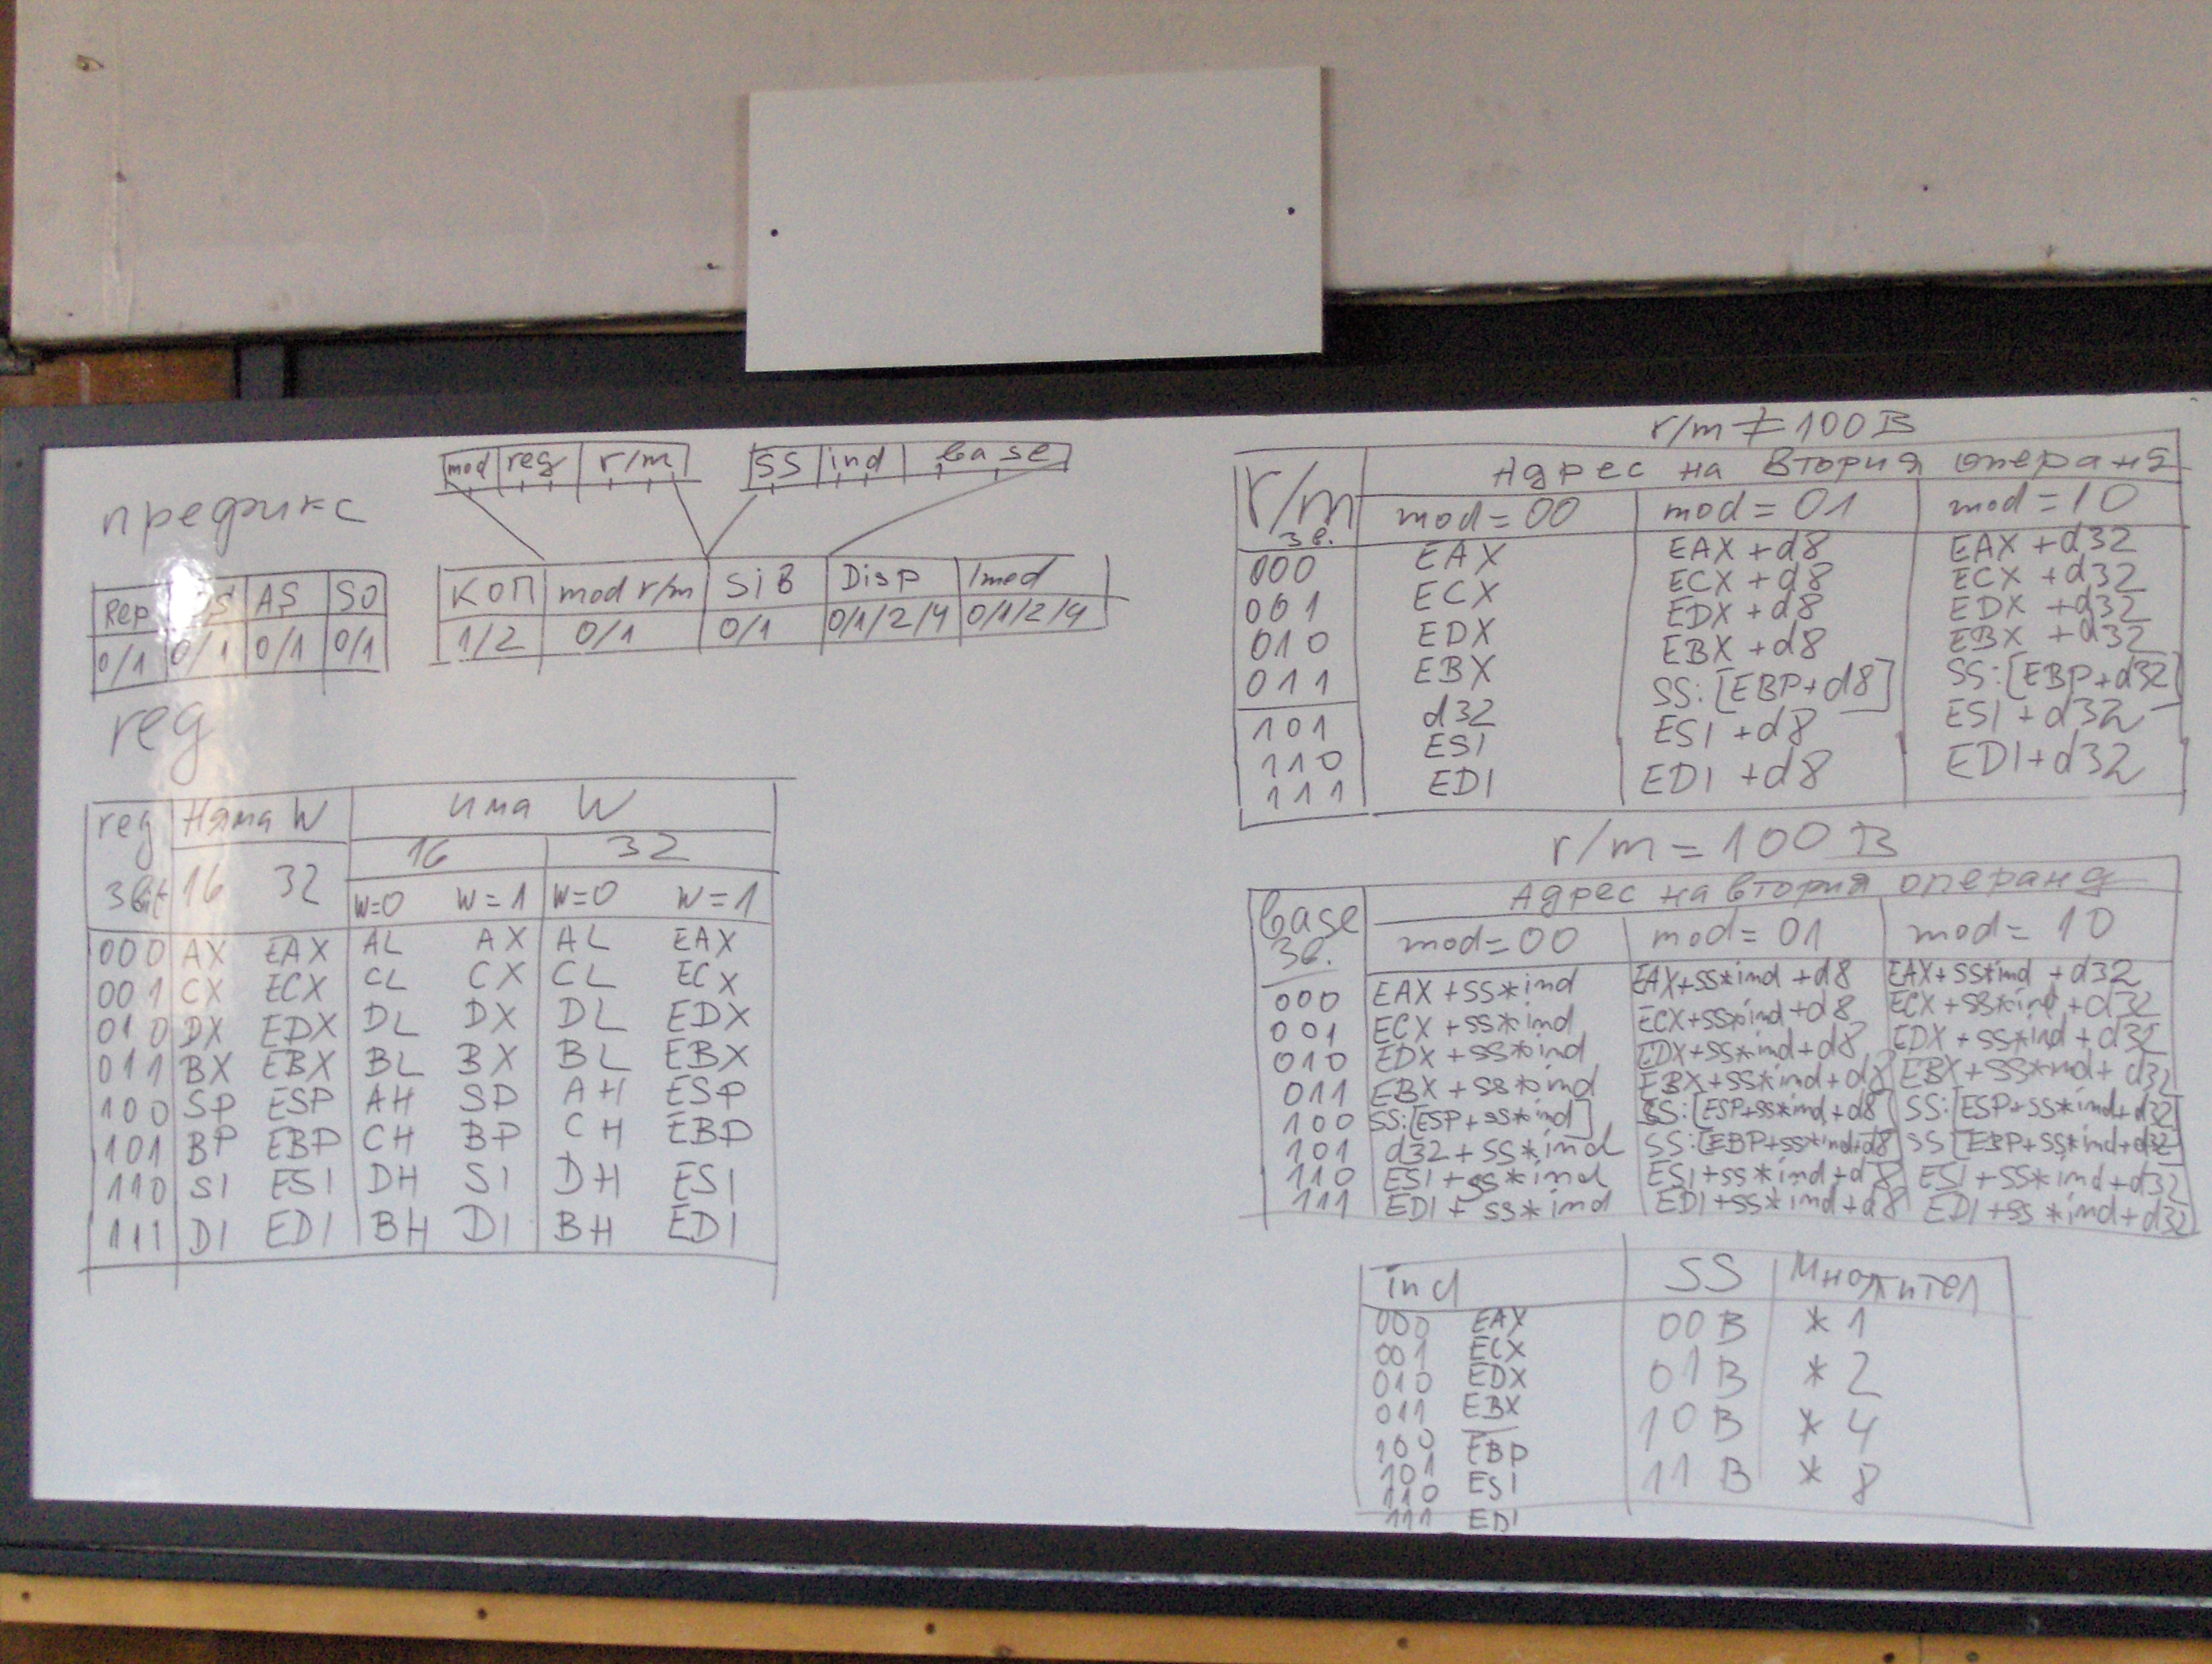 префикс
mod reg r/m
SS ind base
Rep OS AS SO
0/1 0/1 0/1 0/1
КОП mod r/m SiB Disp Imed
1/2 0/1 0/1 0/1/2/4 0/1/2/4
reg
reg Няма W има W
3bit 16 32 16 32
W=0 W=1 W=0 W=1
000 AX EAX AL AX AL EAX
001 CX ECX CL CX CL ECX
010 DX EDX DL DX DL EDX
011 BX EBX BL BX BL EBX
100 SP ESP AH SP AH ESP
101 BP EBP CH BP CH EBP
110 SI ESI DH SI DH ESI
111 DI EDI BH DI BH EDI
r/m ≠ 100B
r/m Адрес на втория операнд
3b. mod=00 mod=01 mod=10
000 EAX EAX+d8 EAX+d32
001 ECX ECX+d8 ECX+d32
010 EDX EDX+d8 EDX+d32
011 EBX EBX+d8 EBX+d32
101 d32 SS:[EBP+d8] SS:[EBP+d32]
110 ESI ESI+d8 ESI+d32
111 EDI EDI+d8 EDI+d32
r/m = 100B
base Адрес на втория операнд
3b. mod=00 mod=01 mod=10
000 EAX+SS*ind EAX+SS*ind+d8 EAX+SS*ind+d32
001 ECX+SS*ind ECX+SS*ind+d8 ECX+SS*ind+d32
010 EDX+SS*ind EDX+SS*ind+d8 EDX+SS*ind+d32
011 EBX+SS*ind EBX+SS*ind+d8 EBX+SS*ind+d32
100 SS:[ESP+SS*ind] SS:[ESP+SS*ind+d8] SS:[ESP+SS*ind+d32]
101 d32+SS*ind SS:[EBP+SS*ind+d8] SS[EBP+SS*ind+d32]
110 ESI+SS*ind ESI+SS*ind+d8 ESI+SS*ind+d32
111 EDI+SS*ind EDI+SS*ind+d8 EDI+SS*ind+d32
ind SS Множител
000 EAX 00B *1
001 ECX
010 EDX 01B *2
011 EBX
100 EBP 10B *4
101 ESI
110 EDI 11B *8
111